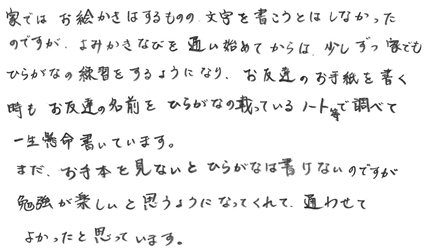 家では お絵かきはするものの、文字を書こうとはしなかった
のですが、よみかきなびを 通い始めてからは、少しずつ 家でも
ひらがなの練習をするようになり、お友達のお手紙を書く
時も お友達の名前を ひらがなの載っている ノート等で調べて
一生懸命 書いています。
まだ、お手本を見ないと ひらがなは書けないのですが
勉強が楽しいと 思うようになってくれて、通わせて
よかったと思っています。